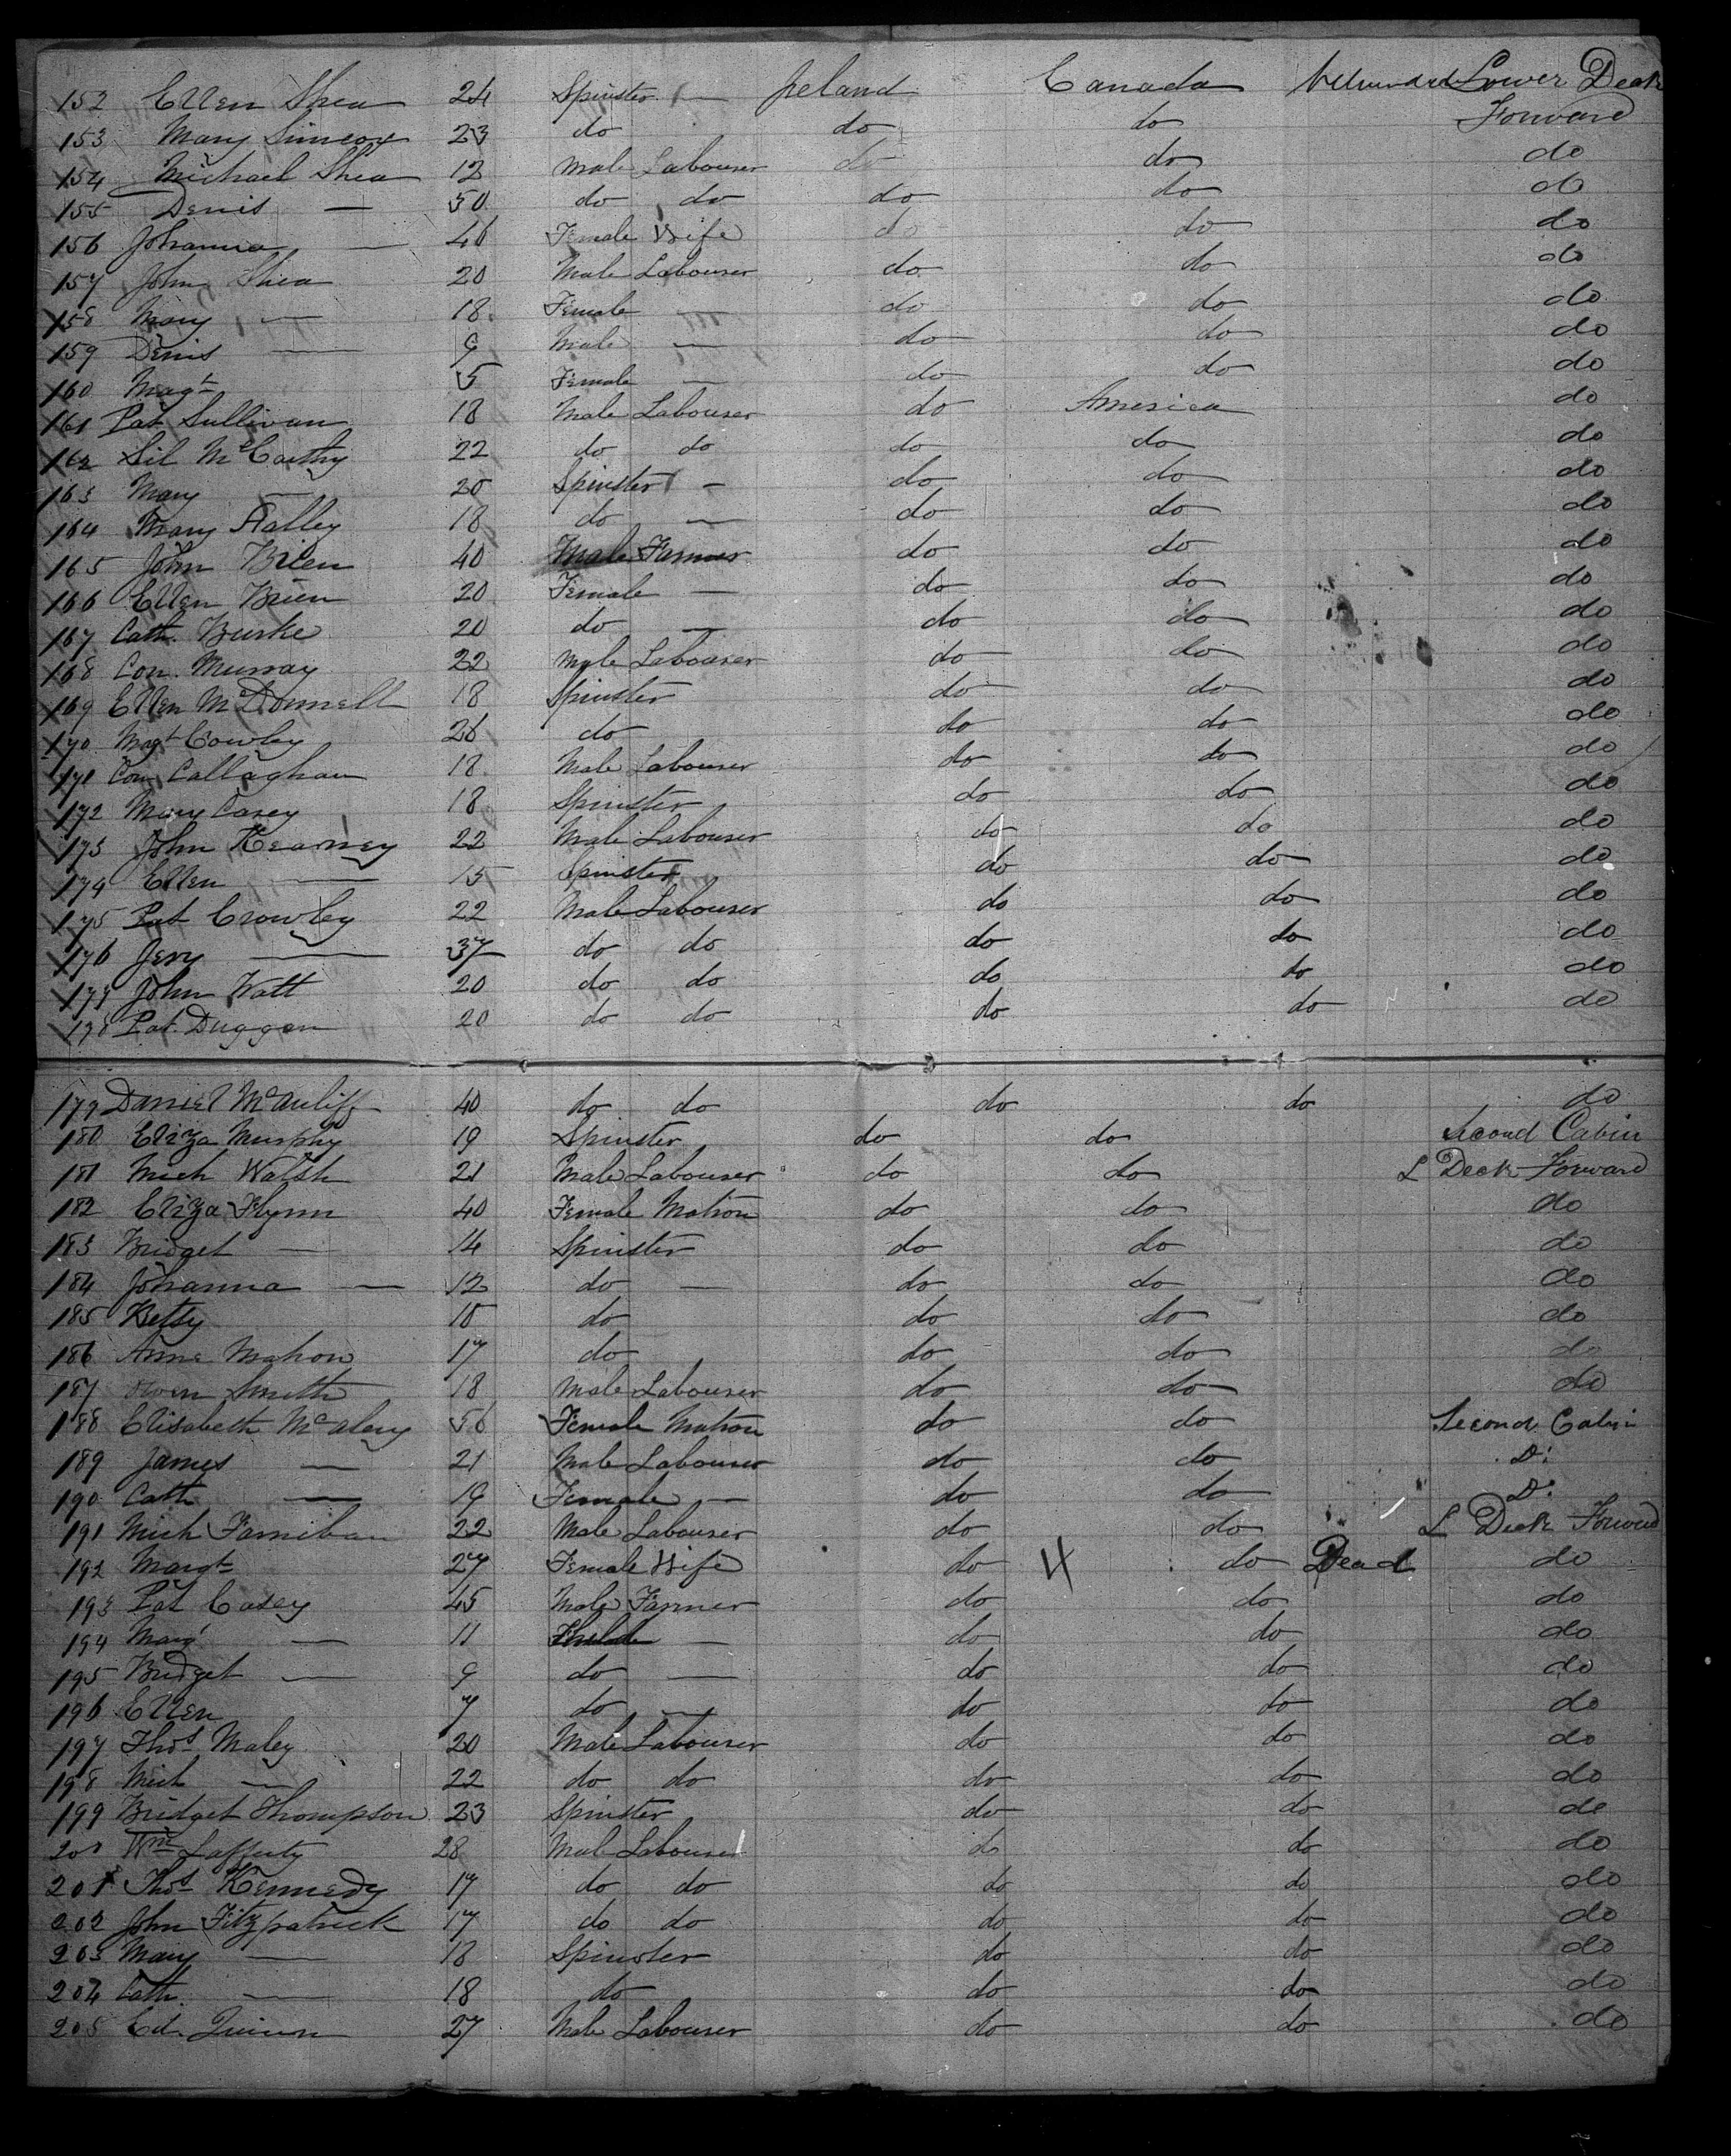 152 Ellen Shea 24 Spinster — Ireland Canada Lower Deck
Forward
153 Mary Simcox 23 do do do
154 Michael Shea 12 Male Labourer do do do
155 Denis — 50 do do do do do
156 Johanna — 46 Female Wife do do do
157 John Shea 20 Male Labourer do do do
158 Mary — 18 Female — do do do
159 Denis — 9 Male — do do do
160 Magt 5 Female — do do do
161 Pat Sullivan 18 Male Labourer do America do
162 Sil McCarthy 22 do do do do do
163 Mary — 20 Spinster — do do do
164 Mary 18 do — do do do
165 John Brien 40 Male Farmer do do do
166 Ellen Brien 20 Female — do do do
167 Cath. Burke 20 do — do do do
168 Con. Murray 22 Male Labourer do do do
169 Ellen McDonnell 18 Spinster do do do
170 Magt Cowley 26 do do do do
171 Con Callaghan 18 Male Labourer do do do
172 Mary Casey 18 Spinster do do do
173 John Kearney 22 Male Labourer do do do
174 Ellen — 15 Spinster do do do
175 Pat Crowley 22 Male Labourer do do do
176 Jery — 37 do do do do do
177 John Watt 20 do do do do do
178 Pat. Duggan 20 do do do do do
179 Daniel McAuliff 40 do do do do do
180 Eliza Murphy 19 Spinster do do Second Cabin
181 Mich Walsh 21 Male Labourer do do L Deck Forward
182 Eliza Flynn 40 Female Matron do do do
183 Bridget — 14 Spinster do do do
184 Johanna — 12 do — do do do
185 Betsy 10 do do do do
186 Anne Mahon 17 do do do do
187 Owen Smith 18 Male Labourer do do do
188 Elisabeth McAleny 56 Female Matron do do Second Cabin
189 James — 21 Male Labourer do do Do
190 Cath — 19 Female — do do Do
191 Mich 22 Male Labourer do do L Deck Forward
192 Margt 27 Female Wife do do Dead do
193 Pat Casey 45 Male Farmer do do do
194 Margt — 11 — do do do
195 Bridget — 9 do — do do do
196 Ellen 7 do — do do do
197 Thos Maley 20 Male Labourer do do do
198 Mich — 22 do do do do do
199 Bridget Thompson 23 Spinster do do do
200 Wm Lafferty 28 Male Labourer do do do
201 Thos Kennedy 17 do do do do do
202 John Fitzpatrick 17 do do do do do
203 Mary — 18 Spinster do do do
204 Cath. — 18 do do do do
205 Ed. Quinn 27 Male Labourer do do do